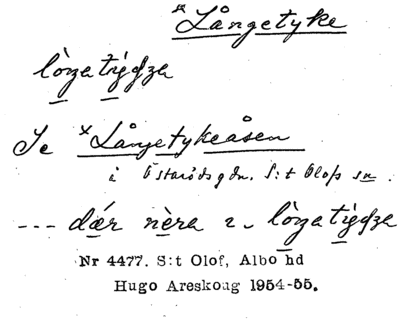 × Långetyke
Se × Långetykeåsen
i Östaröds gdn. S:t Olofs sn.
--- där nèra
Nr 4477. S:t Olof, Albo hd
Hugo Areskoug 1954-55.